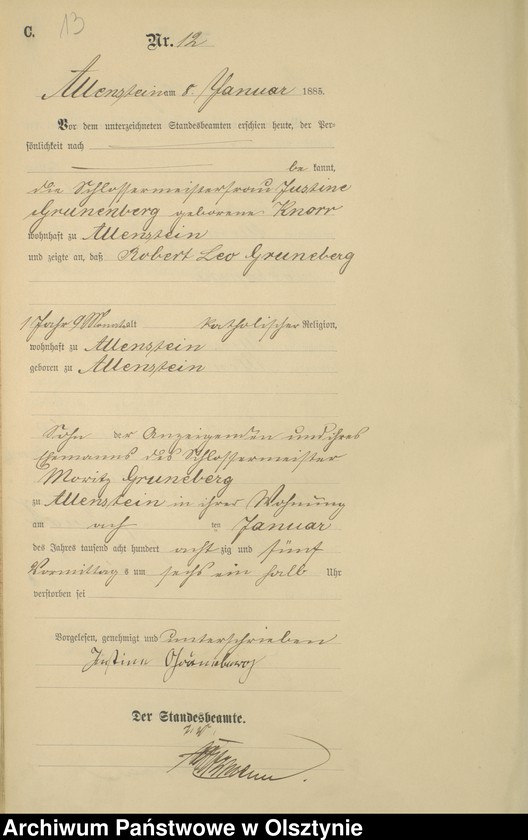 C.
13
Nr. 12
Allenstein am 8. Januar 1885.
Vor dem unterzeichneten Standesbeamten erschien heute, der Per-
sönlichkeit nach
be kannt,
die Schlossermeisterfrau Justine
Grunenberg geborene Knorr
wohnhaft zu Allenstein
und zeigte an, daß Robert Leo Gruneberg
1 Jahr 9 Monat alt katholischer Religion,
wohnhaft zu Allenstein
geboren zu Allenstein
Sohn der Anzeigenden und ihres
Ehemanns des Schlossermeister
Moritz Gruneberg
zu Allenstein in ihrer Wohnung
am ach ten Januar
des Jahres tausend acht hundert acht zig und fünf
Vormittag s um sechs ein halb Uhr
verstorben sei
Vorgelesen, genehmigt und unterschrieben
Justine
Der Standesbeamte.
Archiwum Państwowe w Olsztynie